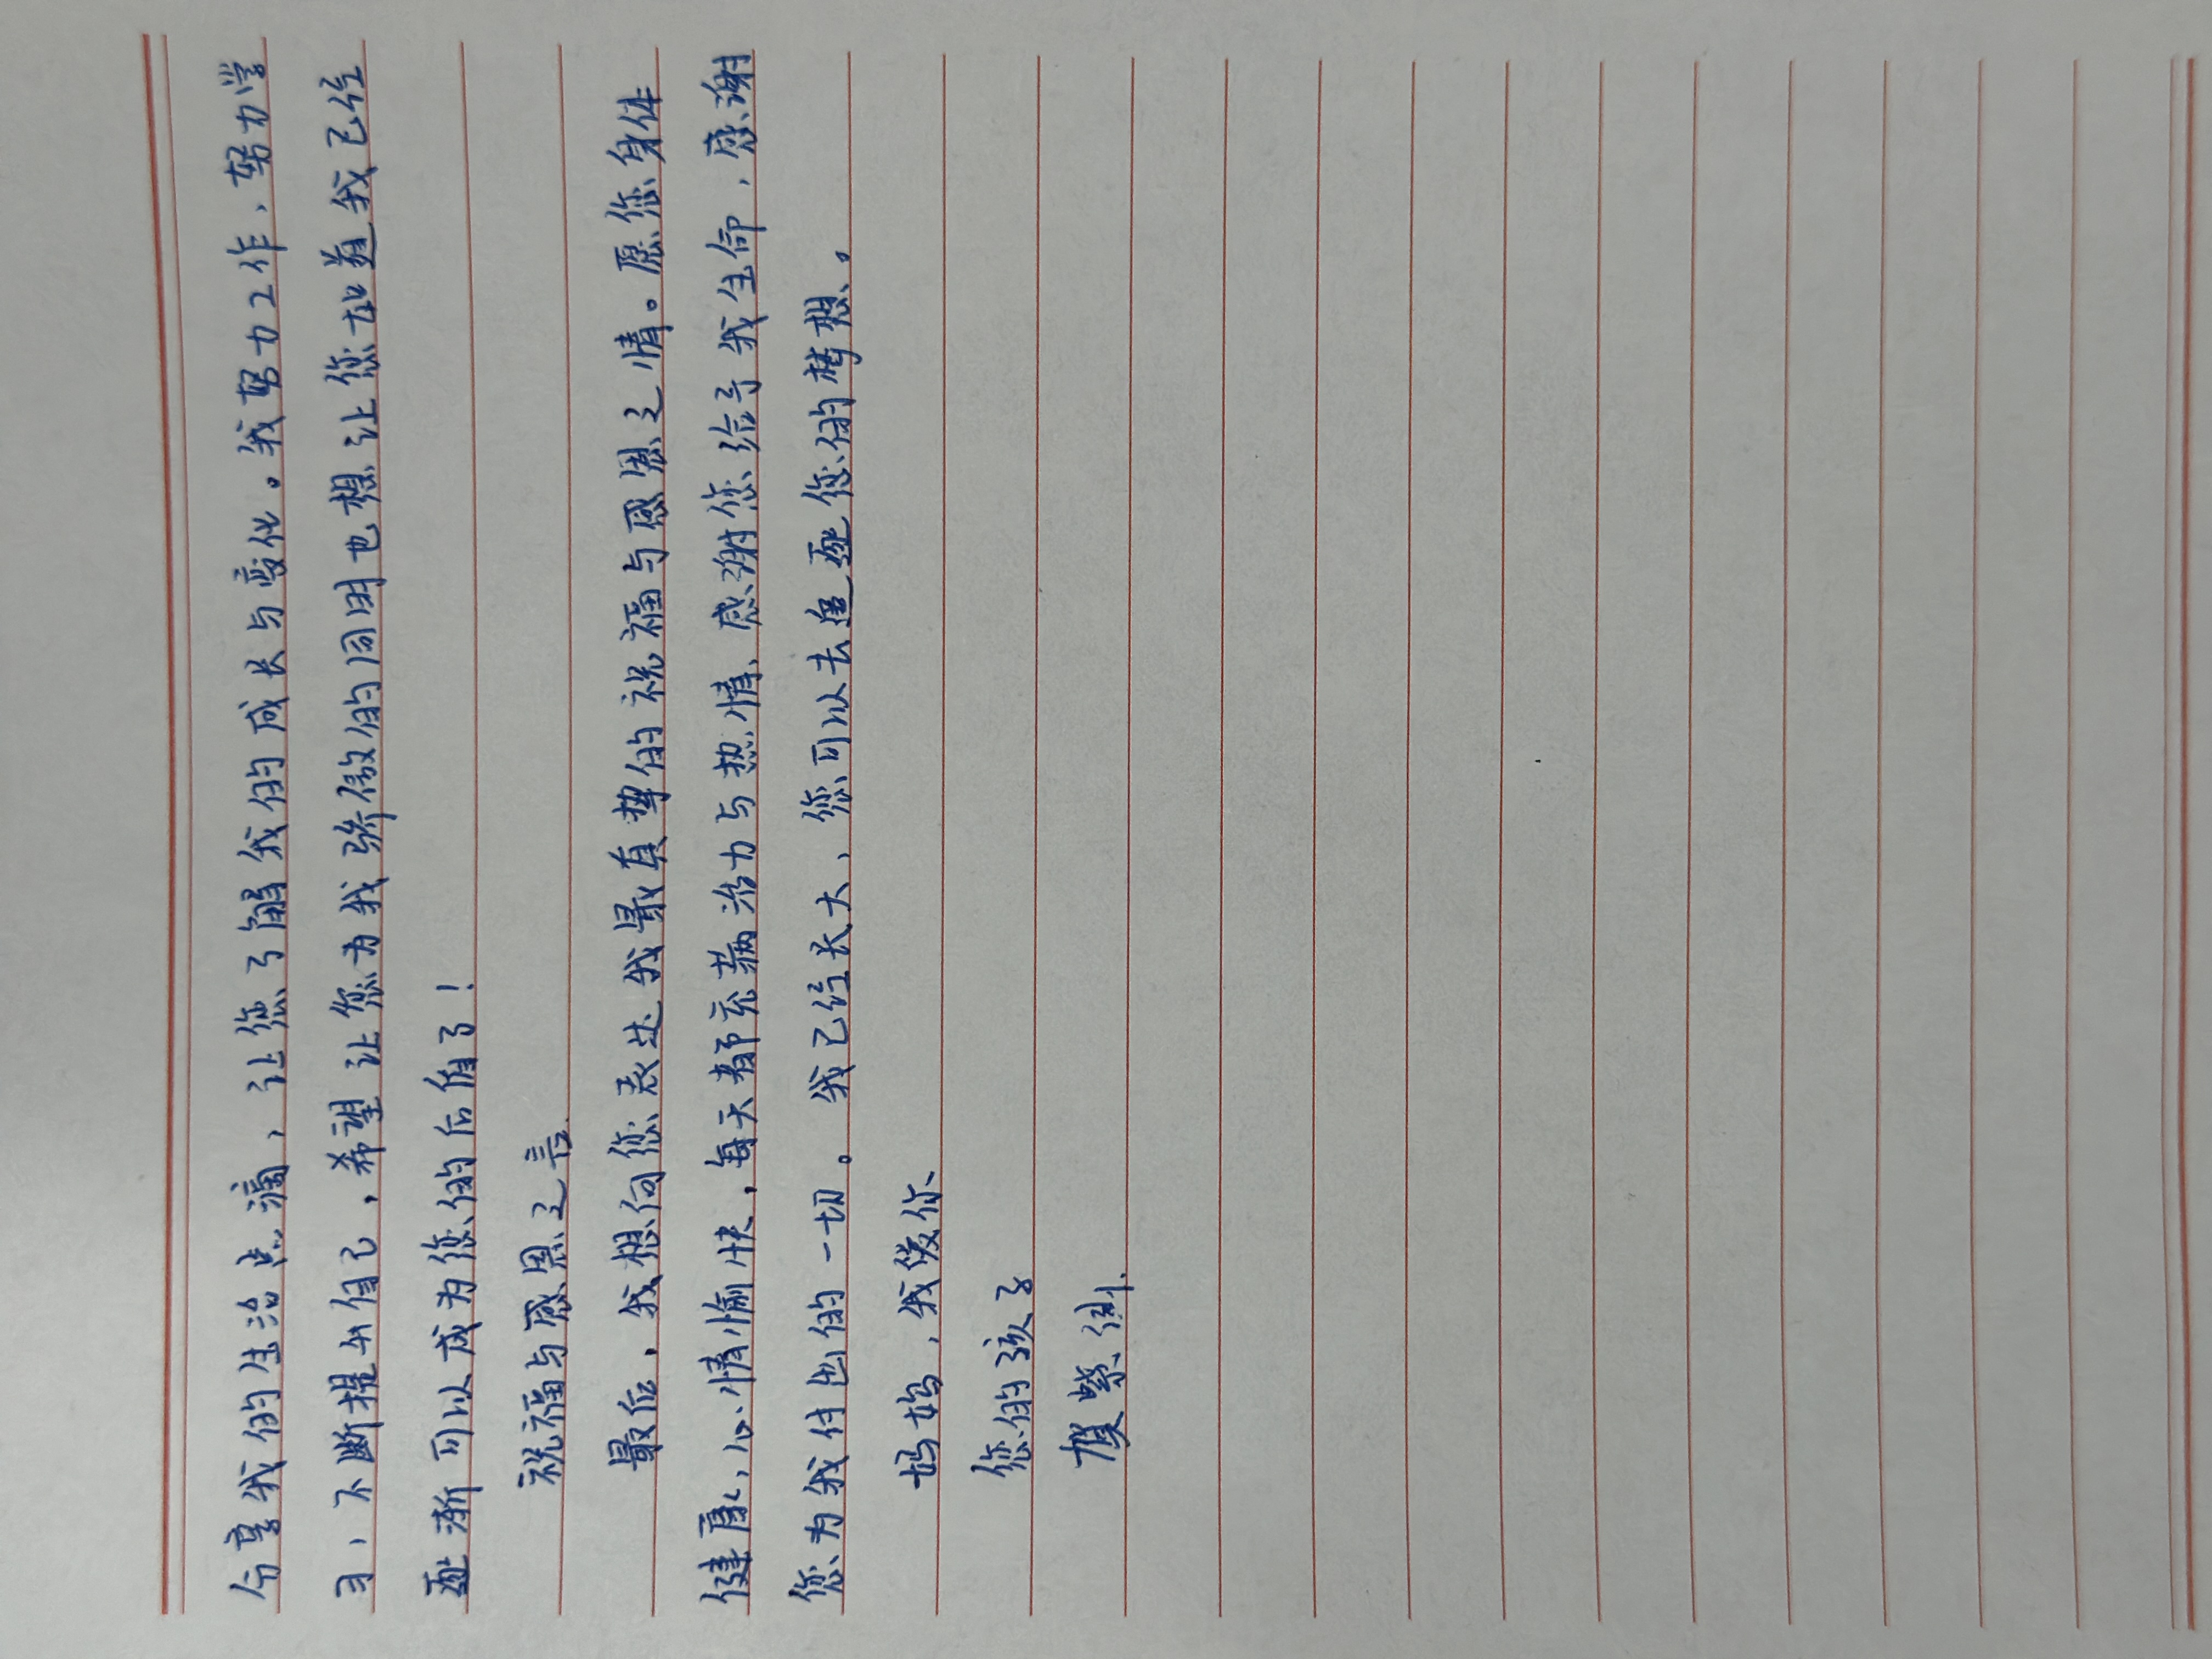 分享我的生活点滴，让您了解我的成长与变化。我努力工作、努力学
习，不断提升自己，希望让您为我骄傲的同时也想让您知道我已经
逐渐可以成为您的后盾了！
祝福与感恩之言
最后，我想向您表达我最真挚的祝福与感恩之情。愿您身体
健康，心情愉快，每天都充满活力与热情、感谢您给予我生命，感谢
您为我付出的一切。我已经长大、您可以去追逐您的梦想。
妈妈，我爱你
您的孩子
贺紫